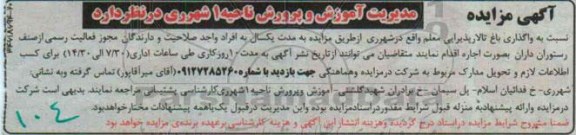 آگهی مزایده
مدیریت آموزش و پرورش ناحیه۱ شهرری درنظردارد
نسبت به واگذاری باغ تالارپذیرایی معلم واقع درشهرری ازطریق مزایده به مدت یکسال به افراد واجد صلاحیت و دارندگان مجوز فعالیت رسمی ازصنف
رستوران داران بصورت اجاره اقدام نمایند متقاضیان می توانند ازتاریخ نشر آگهی به مدت ۱۰روزکاری طی ساعات اداری(۷/۳۰ الی ۱۴/۳۰) برای کسب
اطلاعات لازم و تحویل مدارک مربوط به شرکت درمزایده وهماهنگی جهت بازدید با شماره ۰۹۱۲۷۲۸۵۲۶۰(آقای میرآقاپور) تماس گرفته وبه نشانی:
شهرری-خ فدائیان اسلام- پل سیمان-خ برادران شهیدگلشنی-آموزش وپرورش ناحیه ۱شهرری کارشناسی پشتیبانی مراجعه نمایند. بدیهی است شرکت
درمزایده وارائه پیشنهادبه منزله قبول شرایط مقدور دراسنادمزایده بوده واین مدیریت درقبول یک یاهمه پیشنهادات مختارخواهدبود.
ضمنا مشروح شرایط مزایده دراسناد درج گردیده وهزینه انتشاراین آگهی و هزینه کارشناسی برعهده برنده ی مزایده خواهد بود
۱۰۴